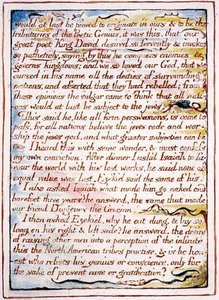 would at last be proved to originate in ours & to be the
tributaries of the Poetic Genius, it was this. that our
great poet King David desired so fervently & invokes
so pathetic'ly, saying by this he conquers enemies &
governs kingdoms; and we so loved our God. that we
cursed in his name all the deities of surrounding
nations, and asserted that they had rebelled; from
these opinions the vulgar came to think that all nati-
ons would at last be subject to the jews.
This said he, like all firm perswasions, is come to
pass, for all nations believe the jews code and wor-
ship the jews god, and what greater subjection can be
I heard this with some wonder, & must confess
my own conviction. After dinner I ask'd Isaiah to fa-
vour the world with his lost works, he said none of
equal value was lost. Ezekiel said the same of his.
I also asked Isaiah what made him go naked and
barefoot three years? he answerd, the same that made
our friend Diogenes the Grecian.
I then asked Ezekiel, why he eat dung, & lay so
long on his right & left side? he answerd, the desire
of raising other men into a perception of the infinite
this the North American tribes practise, & is he hon-
est who resists his genius or conscience. only for
the sake of present ease or gratification?